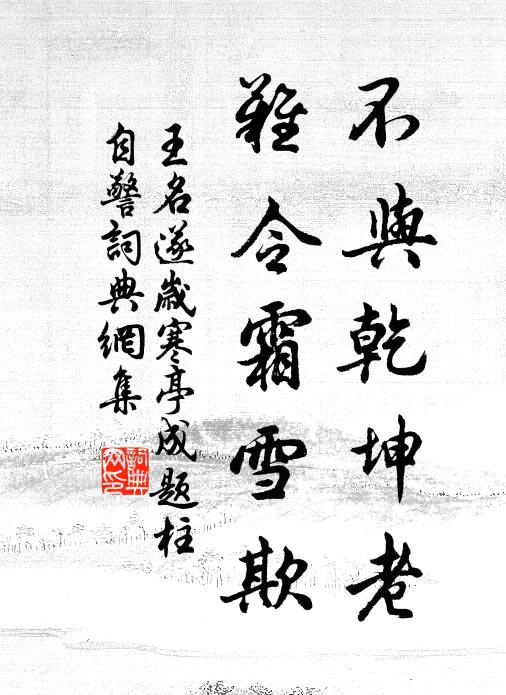 不與乾坤老
難令霜雪欺
王名遂歲寒亭成題柱
自警詞典網集
詞典網印